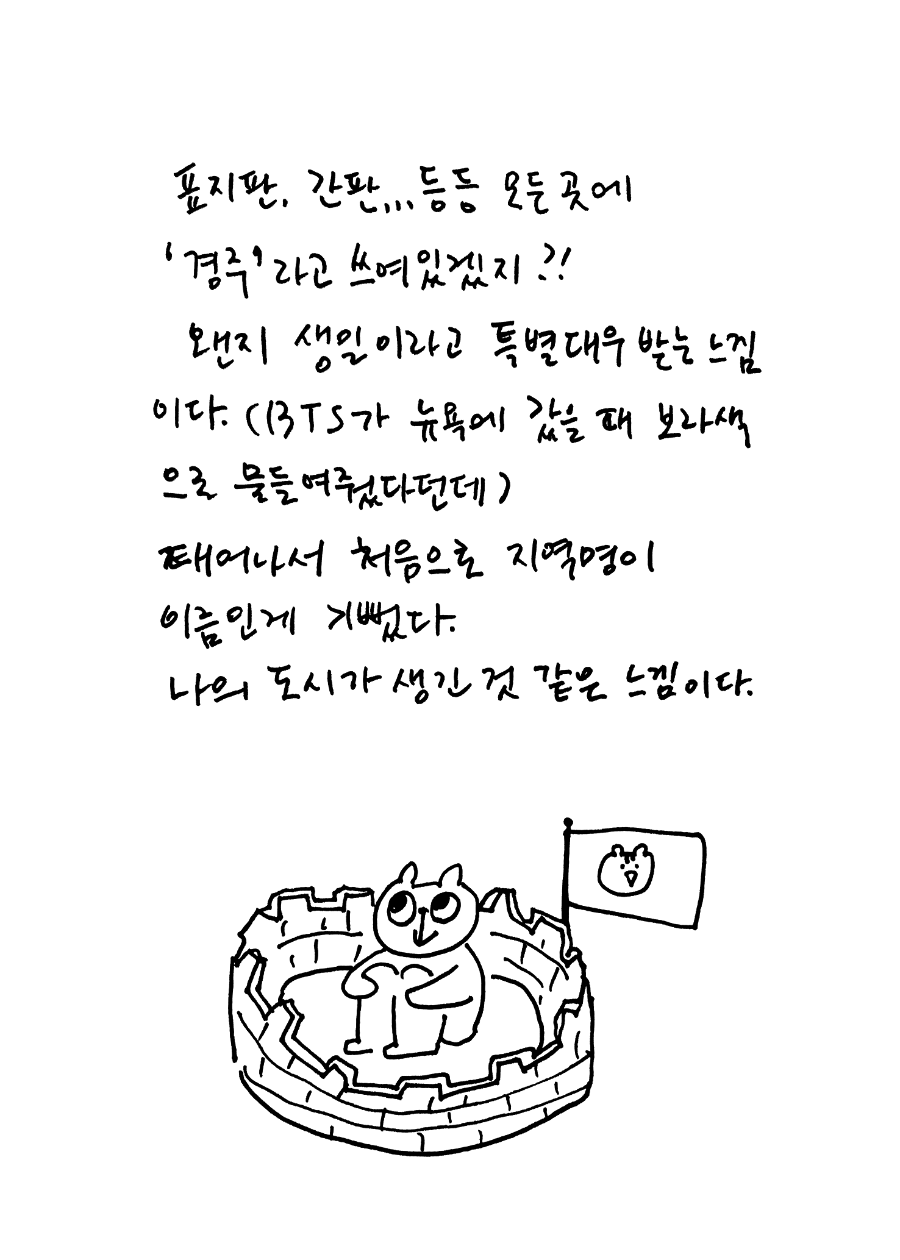 표지판, 간판,,,등등 모든곳에
'경주'라고 쓰여있겠지?!
왠지 생일이라고 특별대우 받는 느낌
이다. (BTS가 뉴욕에 갔을 때 보라색
으로 물들여줬다던데)
태어나서 처음으로 지역명이
이름인게 기뻤다.
나의 도시가 생긴 것 같은 느낌이다.